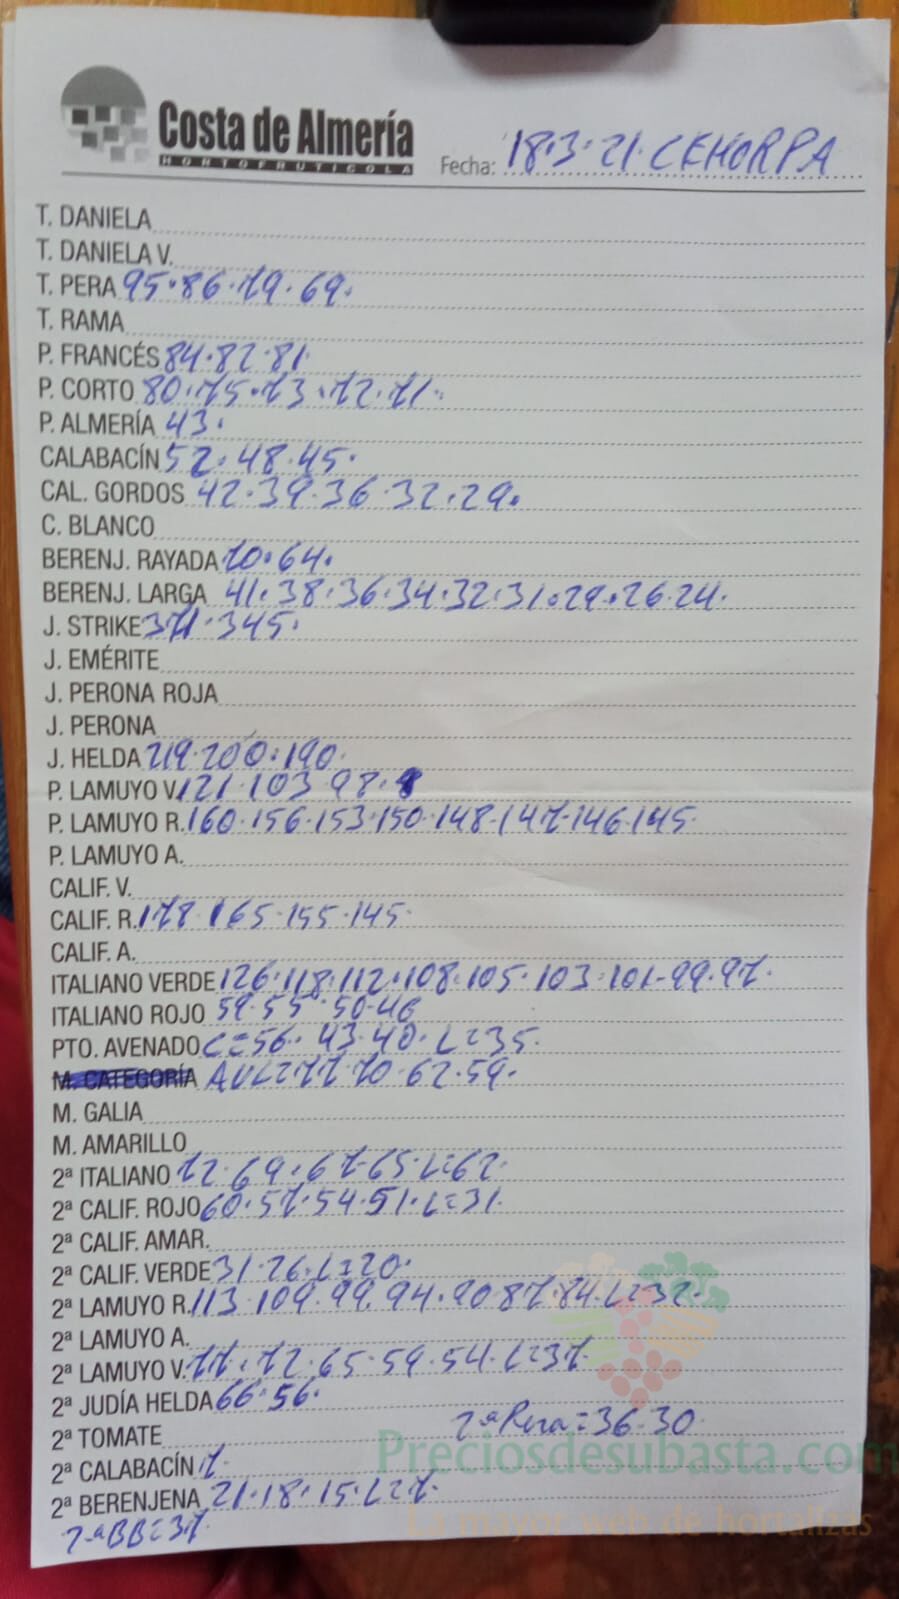 Costa de Almería
HORTOFRUTICOLA
Fecha: 18·3·21· CEHORPA
T. DANIELA
T. DANIELA V.
T. PERA 95·86·79·69·
T. RAMA
P. FRANCÉS 84·82·81·
P. CORTO 80·75·73·72·71·
P. ALMERÍA 43·
CALABACÍN 52·48·45·
CAL. GORDOS 42·39·36·32·29·
C. BLANCO
BERENJ. RAYADA 70·64·
BERENJ. LARGA 41·38·36·34·32·31·29·26·24·
J. STRIKE 371·345·
J. EMÉRITE
J. PERONA ROJA
J. PERONA
J. HELDA 219·200·190·
P. LAMUYO V. 121·103·98·
P. LAMUYO R. 160·156·153·150·148·147·146·145
P. LAMUYO A.
CALIF. V.
CALIF. R. 178·165·155·145·
CALIF. A.
ITALIANO VERDE 126·118·112·108·105·103·101·99·97·
ITALIANO ROJO 59·55·50·46
PTO. AVENADO C=56·43·40·L=35·
M. CATEGORÍA AVL=77·70·62·59·
M. GALIA
M. AMARILLO
2ª ITALIANO 72·69·67·65·L=62·
2ª CALIF. ROJO 60·57·54·51·L=31·
2ª CALIF. AMAR.
2ª CALIF. VERDE 31·26·L=20·
2ª LAMUYO R. 113·109·99·94·90·87·84·L=32·
2ª LAMUYO A.
2ª LAMUYO V. 77·72·65·59·54·L=37·
2ª JUDÍA HELDA 66·56·
2ª TOMATE 2ª Pera=36·30·
Preciosdesubasta.com
2ª CALABACÍN 7·
2ª BERENJENA 21·18·15·L=7·
La mayor web de hortalizas
2ª BB=37·